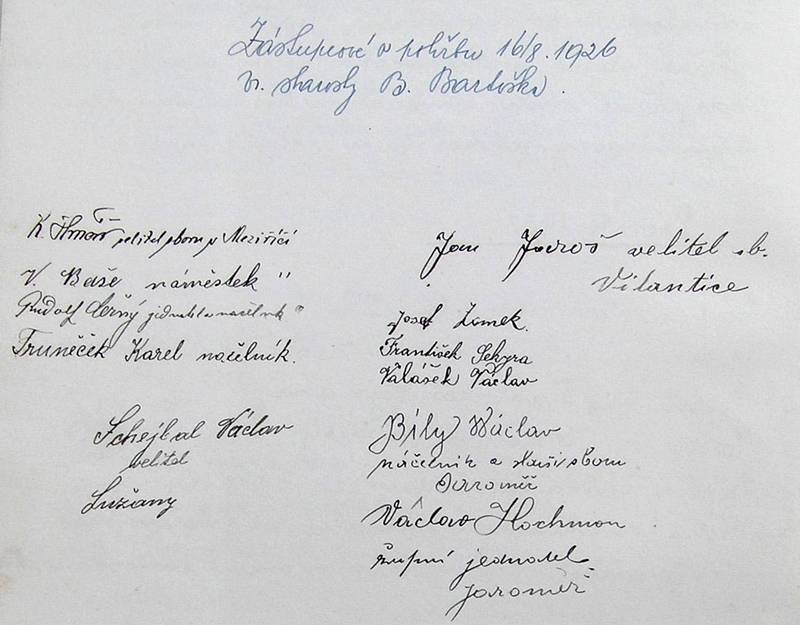 Zástupcové v pohřbu 16/8. 1926
sv. starosty B. Bartoška.
K. velitel sboru v Meziříčí
V. Baše náměstek "
Rudolf Černý jednatel a náčelník "
Truněček Karel načelník.
Schejbal Václav
velitel
Lužany
Jan Jaroš velitel sb.
Vilantice
Josef Zemek.
František Sehyra
Válášek Václav
Bílý Václav
náčelník a sboru
Jaroměř
Václav Hochman
župní jednatel
Jaroměř